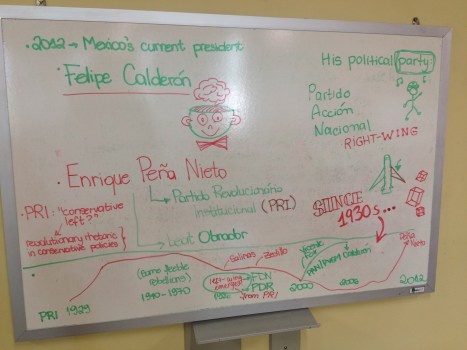 • 2012 → Mexico's current president
Felipe Calderón
His political party
Partido
Acción
Nacional
RIGHT-WING
• Enrique Peña Nieto
→ Partido Revolucionário
Institucional (PRI)
SINCE
1930s...
• PRI: "conservative
left?"
revolutionary rhetoric
in conservative policies
Obrador
Salinas
Zedillo
Vicente
Fox
PAN
Calderón
Peña
Nieto
(Some
rebellions)
1940-1970
left-wing
emerged
FDN
PDR
from PRI
PRI 1929
2000
2006
2012